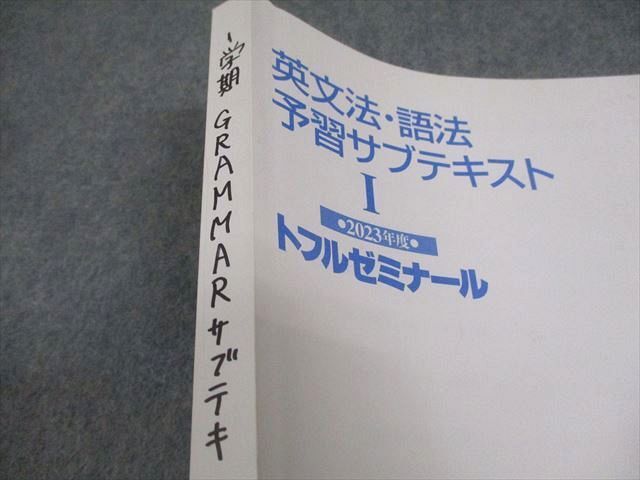 英文法・語法
予習サブテキスト
I
●2023年度●
トフルゼミナール
1学期 GRAMMARサブテキ